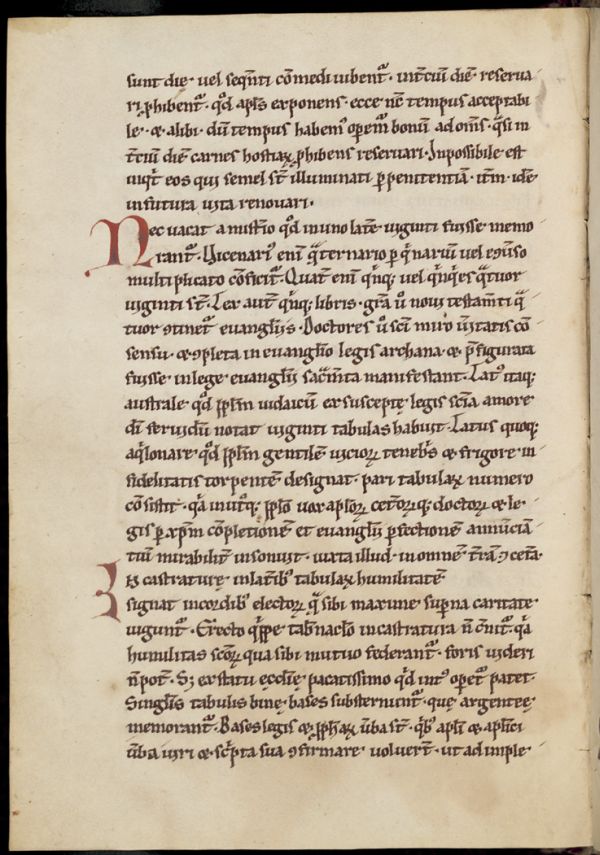 sunt die· uel seqn̄ti cōmedi iubent᷑· in t̄ciū diē reserua
ri ꝓhibent᷑· qđ apłs exponens· ecce nc̄ tempus acceptabi
le· ⁊ alibi· dū tempus habem᷒ opem᷑ bonū ad om̄s· qͣsi in
t̄ciū diē carnes hostiaꝝ ꝓhibens reseruari· Inpossibile est
eos qui semel st̄ illuminati ꝑ penitentiā· itm̄· idē
in futura uita renouari·
Nec uacat a misťio qđ in uno laťe uiginti fuisse memo
rant᷑· Vicenari᷒ eni qͣternario ꝑ qͥnariū uel ꝯuerso
multiplicato cōficit᷑· Quat᷑ eni qͥnq; uel qͥnqͥes qͣtuor
uiginti st̄· Lex aut̄ qͥnq; libris· gr̄a ū noui testam̄ti qͣ
tuor ꝯtinet᷑ euangłiis· Doctores ū sc̄i miro ūitatis cō
sensu· ⁊ ꝯpleta in euangłio legis archana· ⁊ p̄figurata
fuisse in lege euangłii sac̄mta manifestant· Lat᷒ itaq;
australe qđ ppłm iudaicū ex suscepte legis sc̄ia amore
dī feruidū notat uiginti tabulas habuit· Latus quoq;
aqͥlonare qđ ppłm gentilē uicioꝝ tenebͥs ⁊ frigore in
fidelitatis torpentē designat· pari tabulaꝝ numero
cōsistit· qͥa in utͦq; ppło uox apłoꝝ cet̄oꝝq; doctoꝝ ⁊ le
gis ꝑ xp̄m cōpletionē et euangłii ꝑfectionē annūciā
tiū mirabilit᷑ insonuit· iuxta illud· in omnē t̄rā ⁊ cet̄a·
Is castrature in lat̄ib᷒ tabulaꝝ humilitatē
signat in cordib᷒ electoꝝ qͣ sibi maxime suꝑna caritate
iungunt᷑· Erecto qͥppe tab̄nacło incastratura n̄ c̄nit᷑· qͥa
humilitas sc̄oꝝ qua sibi mutuo federant᷑· foris uideri
n̄ pot̄· Sꝫ ex statu ecctie pacatissimo qͥd int᷒ opet᷑ patet·
Singłis tabulis bine bases substernunt᷑· que argentee
memorant᷑· Bases legis ⁊ ꝓphaꝝ ūba st̄· qͥb᷒ apłi ⁊ apłici
ūba uiri ⁊ sc̄pta sua ꝯfirmare uoluert̄· ut ad imple